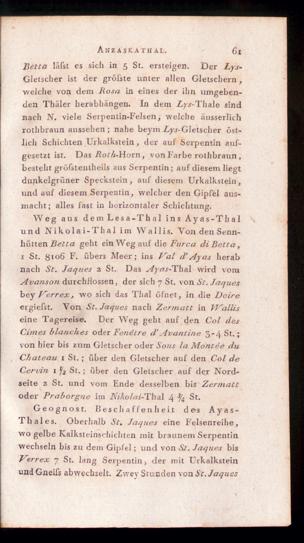 ANZASKATHAL. 61
Betta läſst es sich in 5 St. ersteigen. Der Lys-
Gletscher ist der gröſste unter allen Gletschern,
welche von dem Rosa in eines der ihn umgeben-
den Thäler herabhängen. In dem Lys-Thale sind
nach N. viele Serpentin-Felsen, welche äusserlich
rothbraun aussehen; nahe beym Lys-Gletscher öst-
lich Schichten Urkalkstein, der auf Serpentin auf-
gesetzt ist. Das Roth-Horn, von Farbe rothbraun,
besteht gröſstentheils aus Serpentin; auf diesem liegt
dunkelgrüner Speckstein, auf diesem Urkalkstein,
und auf diesem Serpentin, welcher den Gipfel aus-
macht; alles fast in horizontaler Schichtung.
Weg aus dem Lesa-Thal ins Ayas-Thal
und Nikolai-Thal im Wallis. Von den Senn-
hütten Betta geht ein Weg auf die Furca di Betta,
1 St. 8106 F. übers Meer; ins Val d'Ayas herab
nach St. Jaques 2 St. Das Ayas-Thal wird vom
Avanson durchflossen, der sich 7 St. von St. Jaques
bey Verrex, wo sich das Thal öfnet, in die Deire
ergieſst. Von St. Jaques nach Zermatt in Wallis
eine Tagereise. Der Weg geht auf den Col des
Cimes blanches oder Fenêtre d'Avantine 3-4 St.;
von hier bis zum Gletscher oder Sous la Montée du
Chateau 1 St.; über den Gletscher auf den Col de
Cervin 1 1/2 St.; über den Gletscher auf der Nord-
seite 2 St. und vom Ende desselben bis Zermatt
oder Praborgne im Nikolai-Thal 4 3/4 St.
Geognost. Beschaffenheit des Ayas-
Thales. Oberhalb St. Jaques eine Felsenreihe,
wo gelbe Kalksteinschichten mit braunem Serpentin
wechseln bis zu dem Gipfel; und von St. Jaques bis
Verrex 7 St. lang Serpentin, der mit Urkalkstein
und Gneiſs abwechselt. Zwey Stunden von St. Jaques